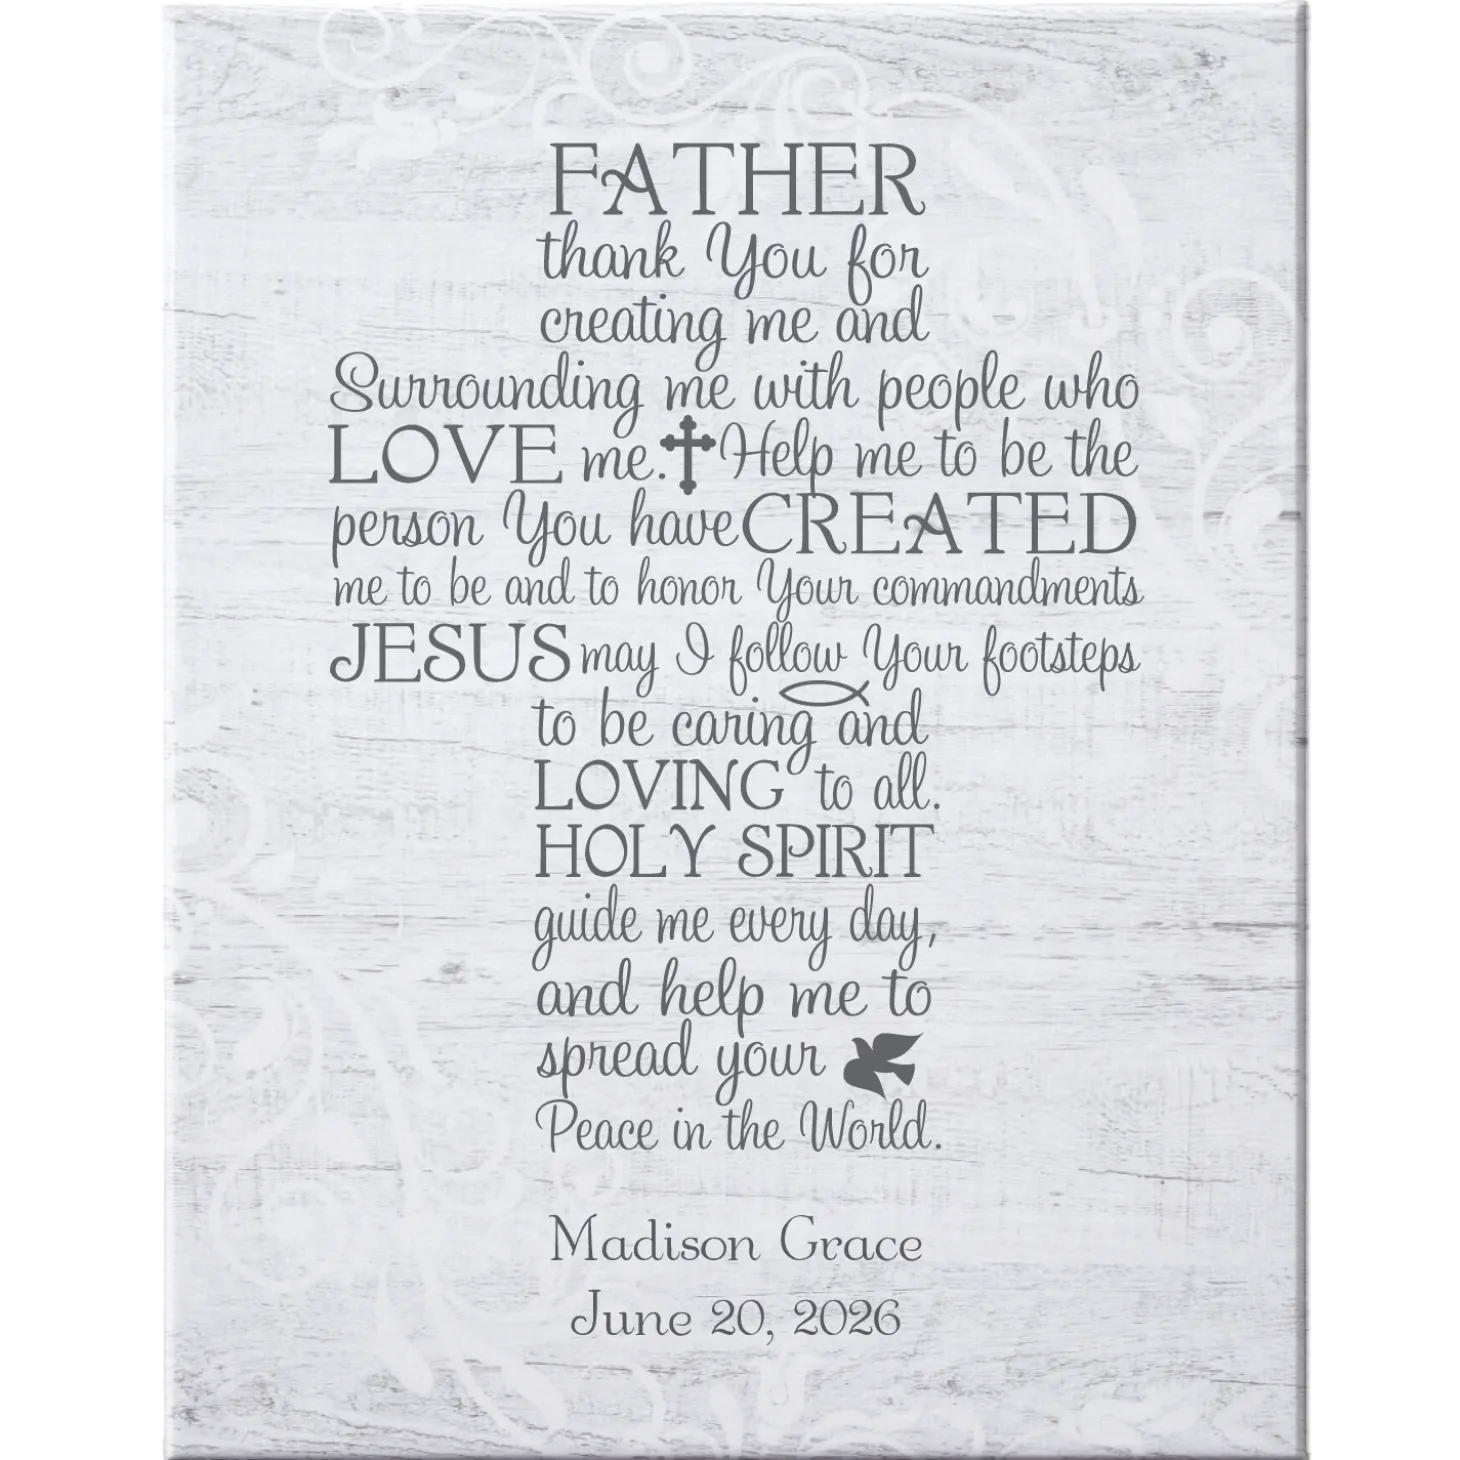 FATHER
thank You for
creating me and
Surrounding me with people who
LOVE me. Help me to be the
person You have CREATED
me to be and to honor Your commandments
JESUS may I follow Your footsteps
to be caring and
LOVING to all.
HOLY SPIRIT
guide me every day,
and help me to
spread your
Peace in the World.
Madison Grace
June 20, 2026